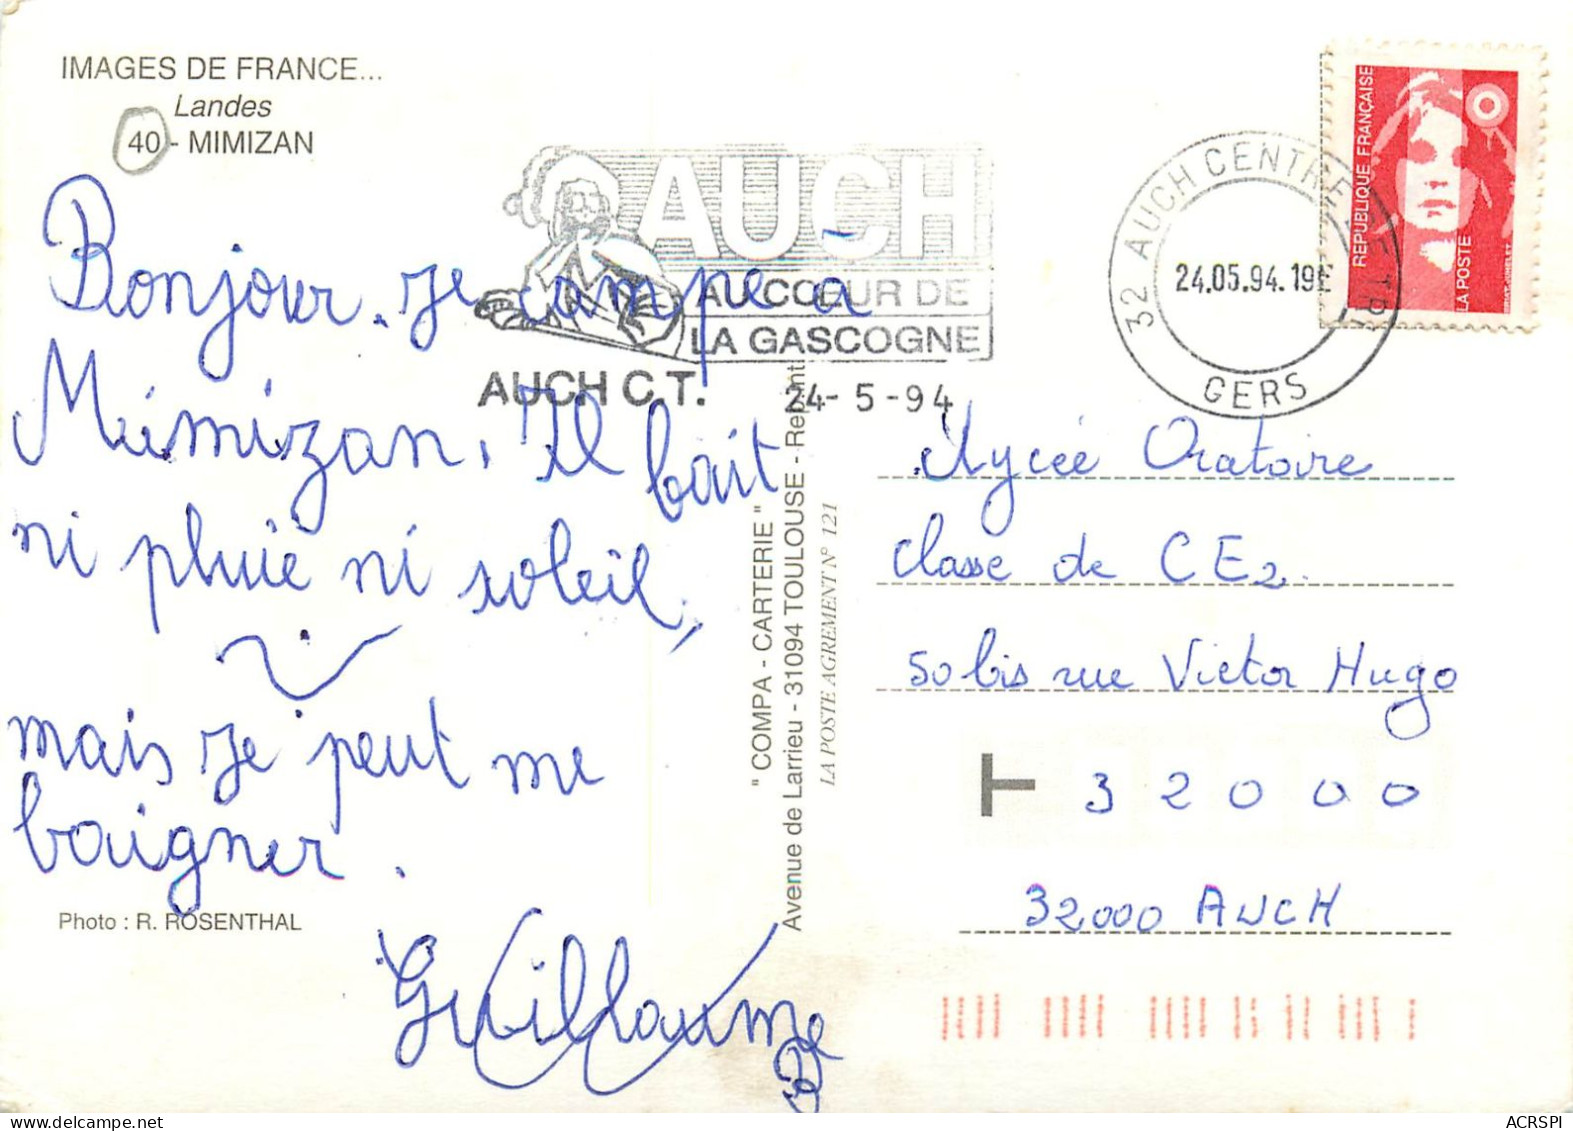 IMAGES DE FRANCE...
Landes
40 - MIMIZAN
Bonjour. je campe à
Mimizan. Il fait
ni pluie ni soleil,
mais je peut me
baigner.
Guillaume
Photo : R. ROSENTHAL
AUCH
AU CŒUR DE
LA GASCOGNE
AUCH C.T. 24- 5 -94
32 AUCH CENTRE
24.05.94.19
GERS
REPUBLIQUE FRANÇAISE
LA POSTE
" COMPA - CARTERIE "
Avenue de Larrieu - 31094 TOULOUSE -
LA POSTE AGREMENT N° 121
Lycée Oratoire
classe de CE2.
50 bis rue Victor Hugo
T 3 2 0 0 0
32000 AUCH
ACRSPI